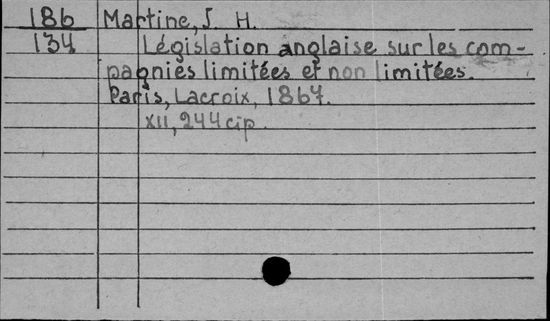 186 Martine, J. H.
134 Législation anglaise sur les com-
pagnies limitées et non limitées.
Paris, Lacroix, 1867.
XII, 244 cip.